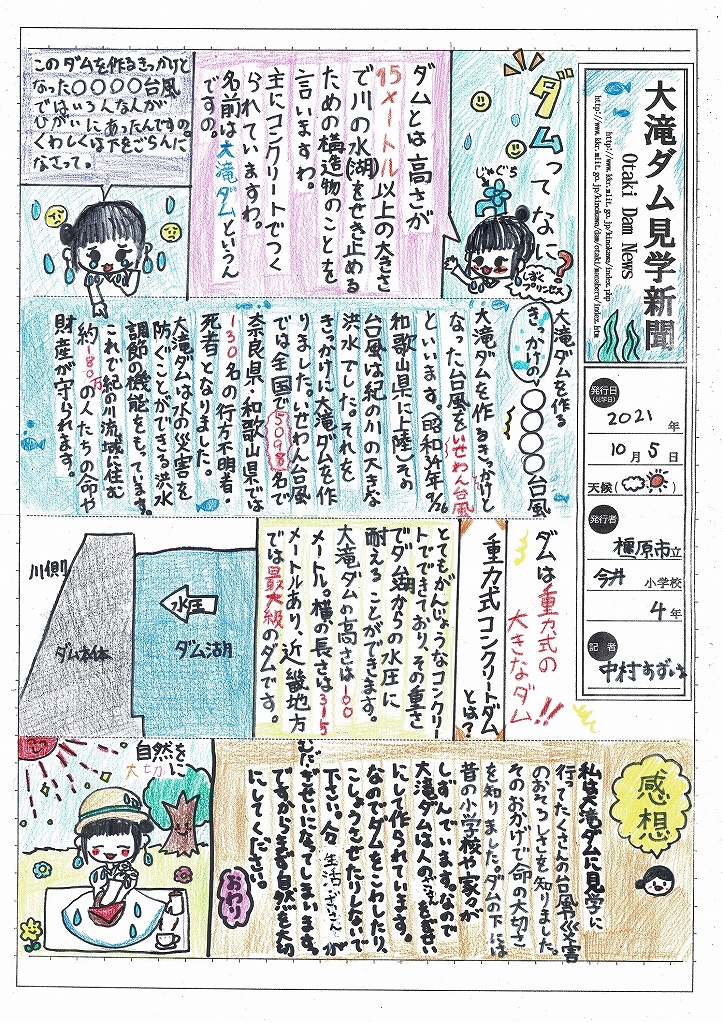 大滝ダム見学新聞
Otaki Dam News
http://www.kkr.mlit.go.jp/kinokawa/index.php
発行日
(見学日)
2021年
10月5日
天候( )
発行者
橿原市立
今井小学校
4年
記者
中村あずは
ダムってなに?
じゃぐち
しずくプリンセス
ダムとは高さが
15メートル以上の大きさ
で川の水(湖)をせき止める
ための構造物のことを
言いますわ。
主にコンクリートでつく
られていますわ。
名前は大滝ダムというん
ですの。
このダムを作るきっかけと
なった〇〇〇〇台風
ではいろんな人が
ひがいにあったんですの。
くわしくは下をごらんに
なさって。
大滝ダムを作る
きっかけの〇〇〇〇台風
大滝ダムを作るきっかけと
なった台風をいせわん台風
といいます。(昭和34年9/26
和歌山県に上陸)その
台風は紀の川の大きな
洪水でした。それを
きっかけに大滝ダムを作
りました。いせわん台風
では全国で5098名で
奈良県・和歌山県では
130名の行方不明者・
死者となりました。
大滝ダムは水の災害を
防ぐことができる洪水
調節の機能をもっています。
これで紀の川流域に住む
約180万の人たちの命や
財産が守られます。
ダムは重力式の
大きなダム!!
重力式コンクリートダム
とは?
とてもがんじょうなコンクリー
トでできており、その重さ
でダム湖からの水圧に
耐えることができます。
大滝ダムの高さは100
メートル。横の長さは315
メートルあり、近畿地方
では最大級のダムです。
川側
ダム本体
水圧
ダム湖
感想
私は大滝ダムに見学に
行ってたくさんの台風や災害
のおそろしさを知りました。
そのおかげで命の大切さ
を知りました。ダムの下には
昔の小学校や家々が
しずんでいます。なので
大滝ダムは人の を
にして作られています。
なのでダムをこわしたり、
こしょうさせたりしないで
下さい。 が
むだ になってしまいます。
ですからまず自然を大切
にしてください。
おわり
自然を
大切に